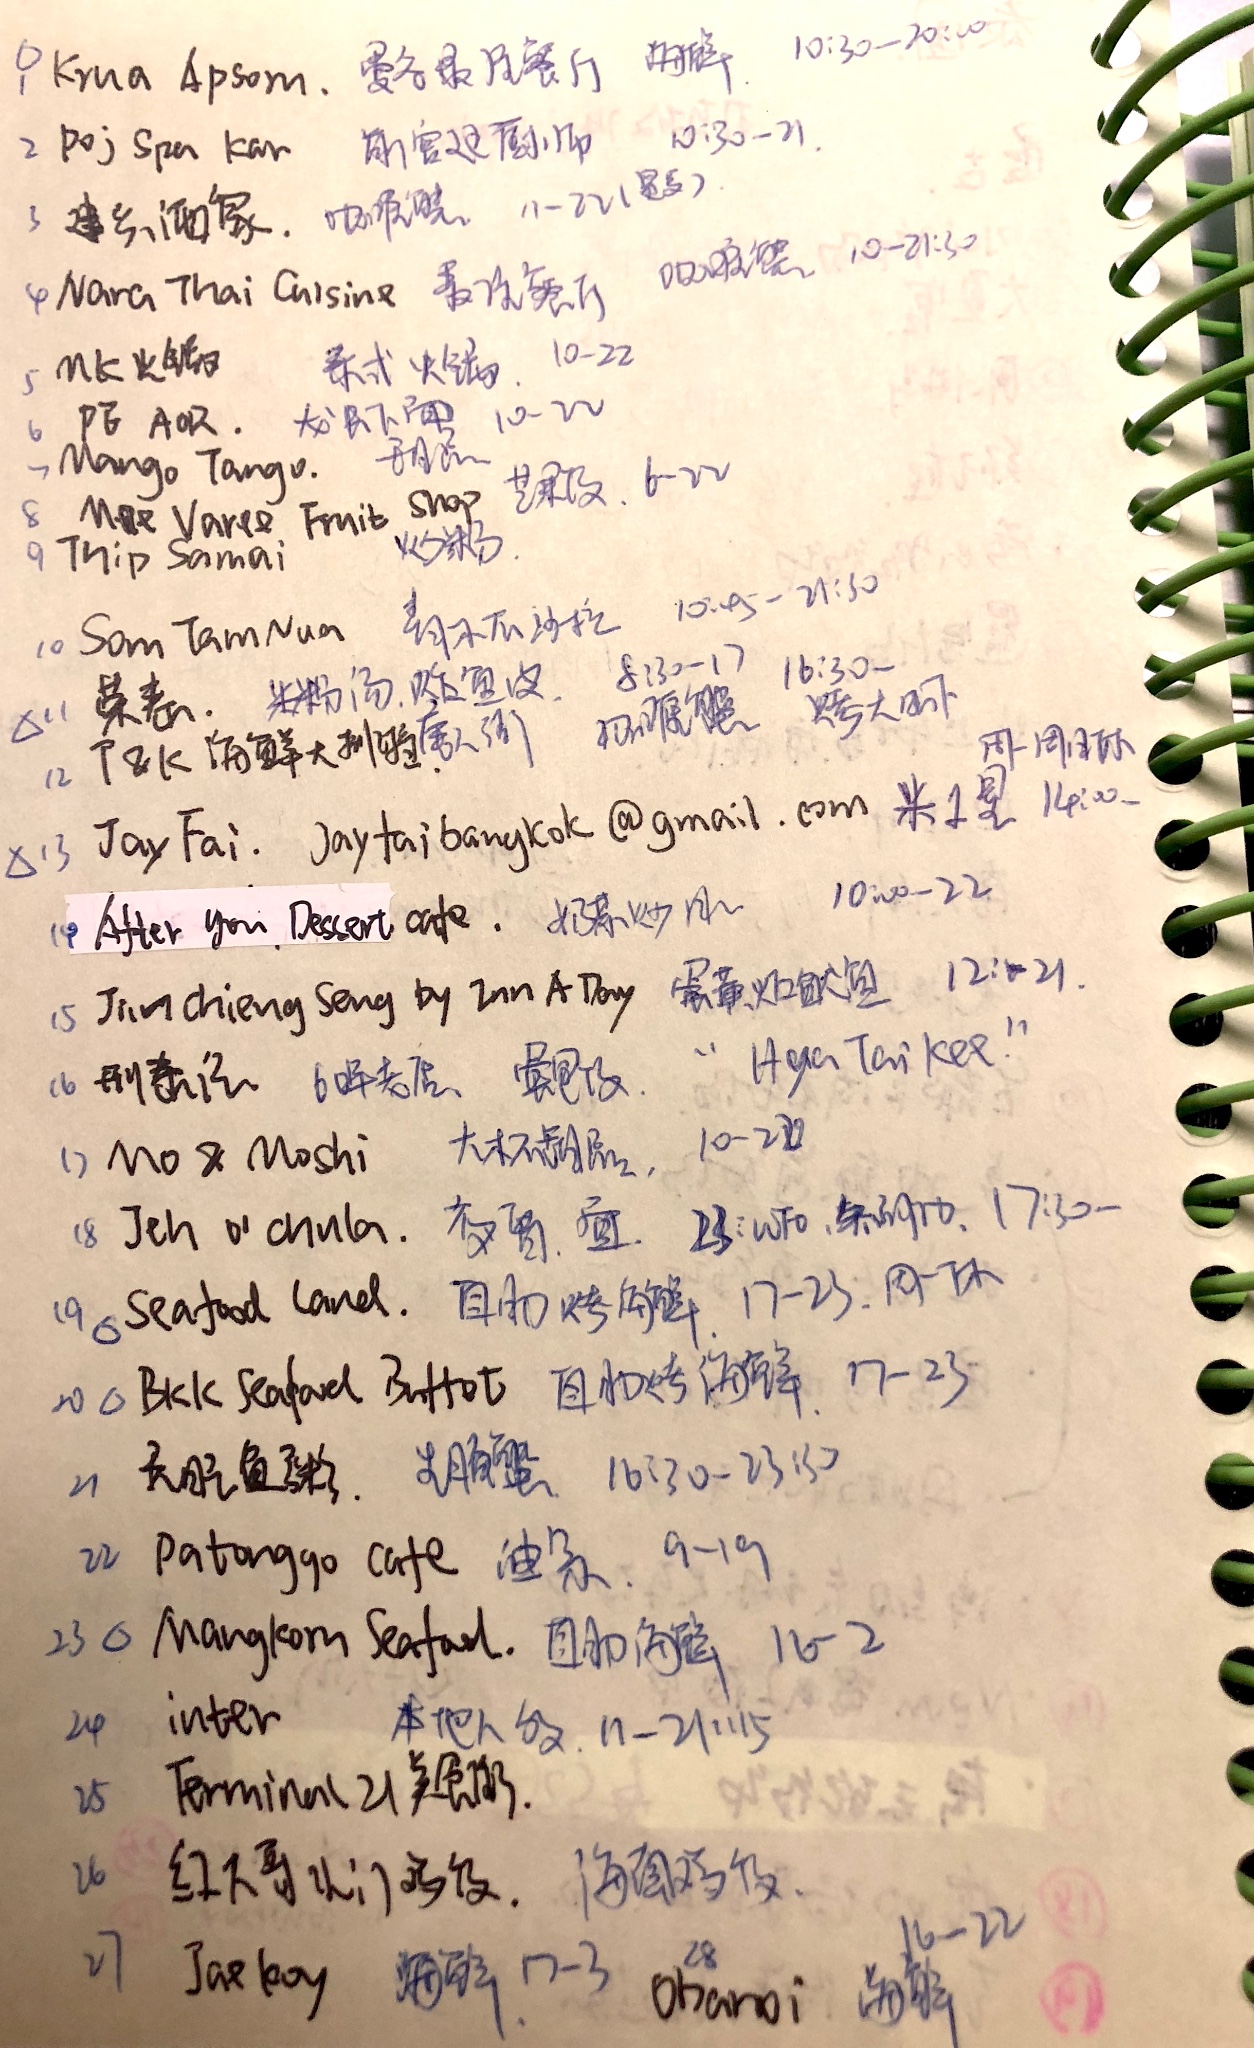 1 Krua Apsorn. 曼谷最佳餐厅 海鲜 10:30-20:00
2 Poj Spa Kar 前宫廷厨师 10:30-21.
3 建兴酒家. 咖喱蟹 11-22
4 Nara Thai Cuisine 最佳餐厅 咖喱蟹 10-21:30
5 MK火锅 泰式火锅. 10-22
6 PE AOR. 龙虾面 10-22
7 Mango Tango.
8 Mae Varee Fruit shop 芒果饭. 6-22
9 Thip Samai 炒粉.
10 Som Tam Nua 青木瓜沙拉 10:45-21:30
△11 荣泰. 米粉汤. 炸鱼皮. 8:30-17
12 T&K 海鲜大排档 唐人街 咖喱蟹 烤大虾 16:30-
△13 Jay Fai. Jayfaibangkok@gmail.com 米1星 14:00- 周一周日休
14 After You Dessert cafe. 10:00-22
15 Jim chieng Seng by Inn A Day 12:-21.
16 老店 "Hya Tai Kee"
17 Mo & Moshi 大杯 10-22
18 Jeh O'chula. 17:30-
19 Seafood Land. 自助烤海鲜. 17-23. 周一休
20 BKK Seafood Buffet 自助烤海鲜. 17-23
21 天虾鱼粥. 生腌蟹 16:30-23:30
22 Patonggo cafe 油条. 9-19
23 Mangkorn Seafood. 自助海鲜 16-2
24 inter 本地人多. 11-21:15
25 Terminal 21 美食街.
26 红大哥水门鸡饭. 海南鸡饭.
27 Jaekoy 海鲜. 17-3 28 海鲜 16-22